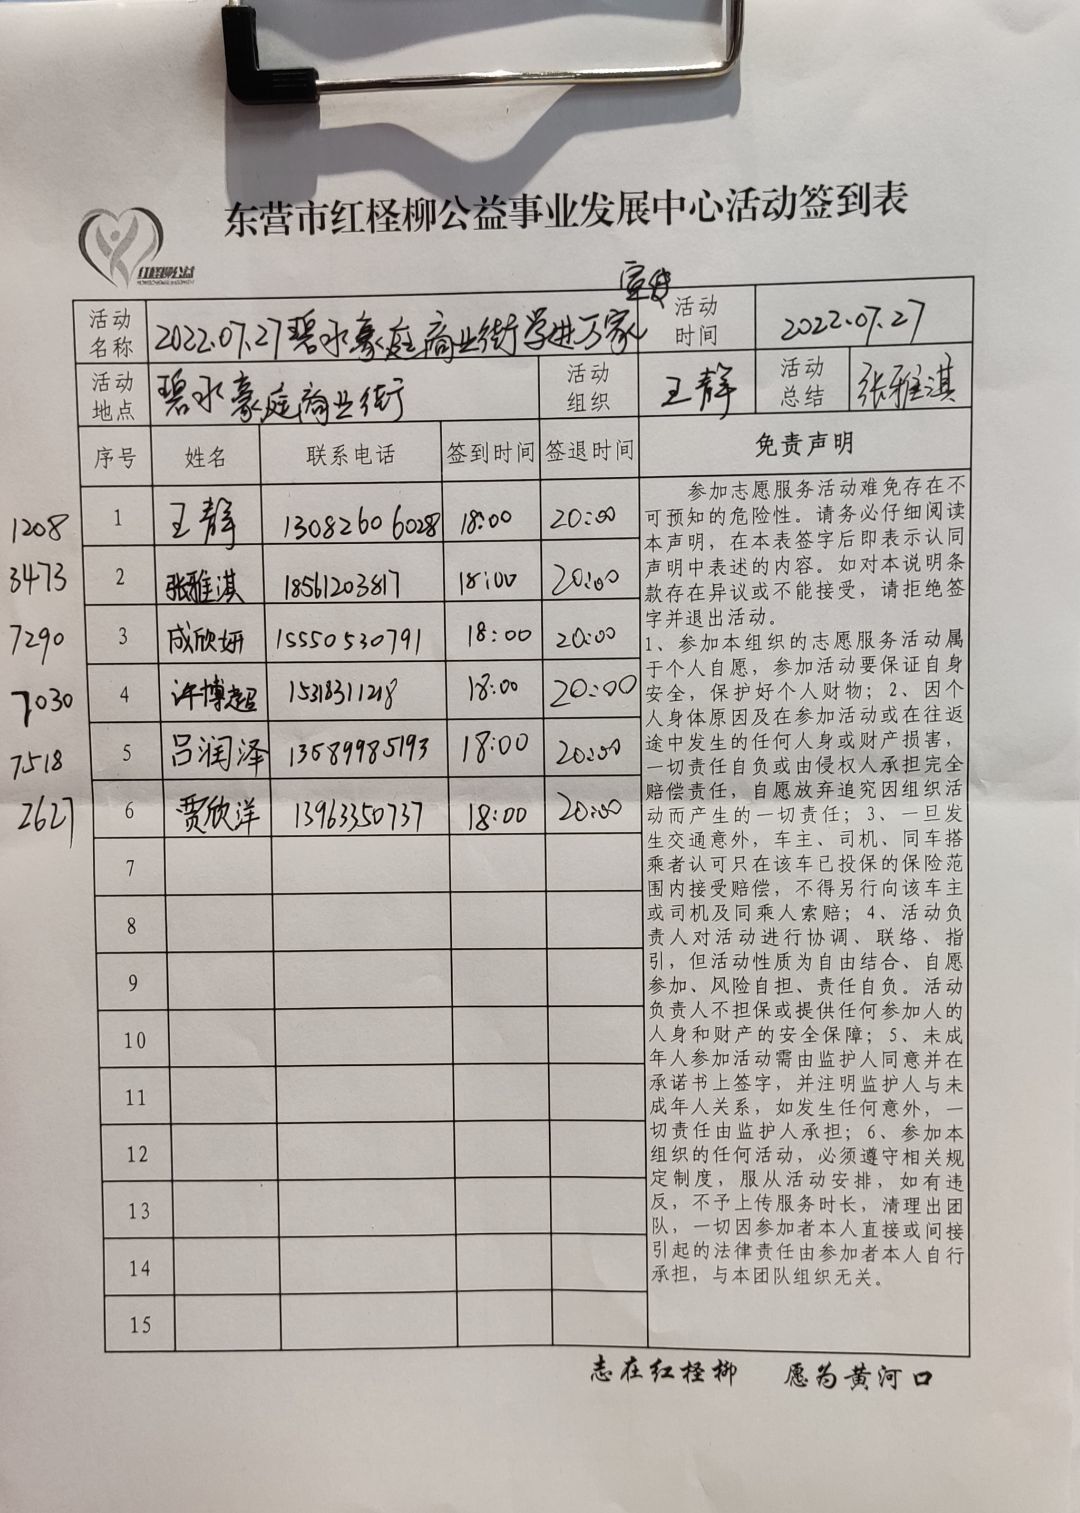 东营市红柽柳公益事业发展中心活动签到表
红柽柳公益
宣传
活动名称 2022.07.27碧水豪庭商业街学进万家 活动时间 2022.07.27
活动地点 碧水豪庭商业街 活动组织 王静 活动总结 张雅淇
序号 姓名 联系电话 签到时间 签退时间 免责声明
1208 1 王静 13082606028 18:00 20:00
3473 2 张雅淇 18561203817 18:00 20:00
7290 3 成欣妍 15550530791 18:00 20:00
7030 4 许博超 15318311218 18:00 20:00
7518 5 吕润泽 13589985193 18:00 20:00
2627 6 贾欣洋 13963350737 18:00 20:00
7
8
9
10
11
12
13
14
15
参加志愿服务活动难免存在不
可预知的危险性。请务必仔细阅读
本声明，在本表签字后即表示认同
声明中表述的内容。如对本说明条
款存在异议或不能接受，请拒绝签
字并退出活动。
1、参加本组织的志愿服务活动属
于个人自愿，参加活动要保证自身
安全，保护好个人财物；2、因个
人身体原因及在参加活动或在往返
途中发生的任何人身或财产损害，
一切责任自负或由侵权人承担完全
赔偿责任，自愿放弃追究因组织活
动而产生的一切责任；3、一旦发
生交通意外，车主、司机、同车搭
乘者认可只在该车已投保的保险范
围内接受赔偿，不得另行向该车主
或司机及同乘人索赔；4、活动负
责人对活动进行协调、联络、指
引，但活动性质为自由结合、自愿
参加、风险自担、责任自负。活动
负责人不担保或提供任何参加人的
人身和财产的安全保障；5、未成
年人参加活动需由监护人同意并在
承诺书上签字，并注明监护人与未
成年人关系，如发生任何意外，一
切责任由监护人承担；6、参加本
组织的任何活动，必须遵守相关规
定制度，服从活动安排，如有违
反，不予上传服务时长，清理出团
队，一切因参加者本人直接或间接
引起的法律责任由参加者本人自行
承担，与本团队组织无关。
志在红柽柳 愿为黄河口